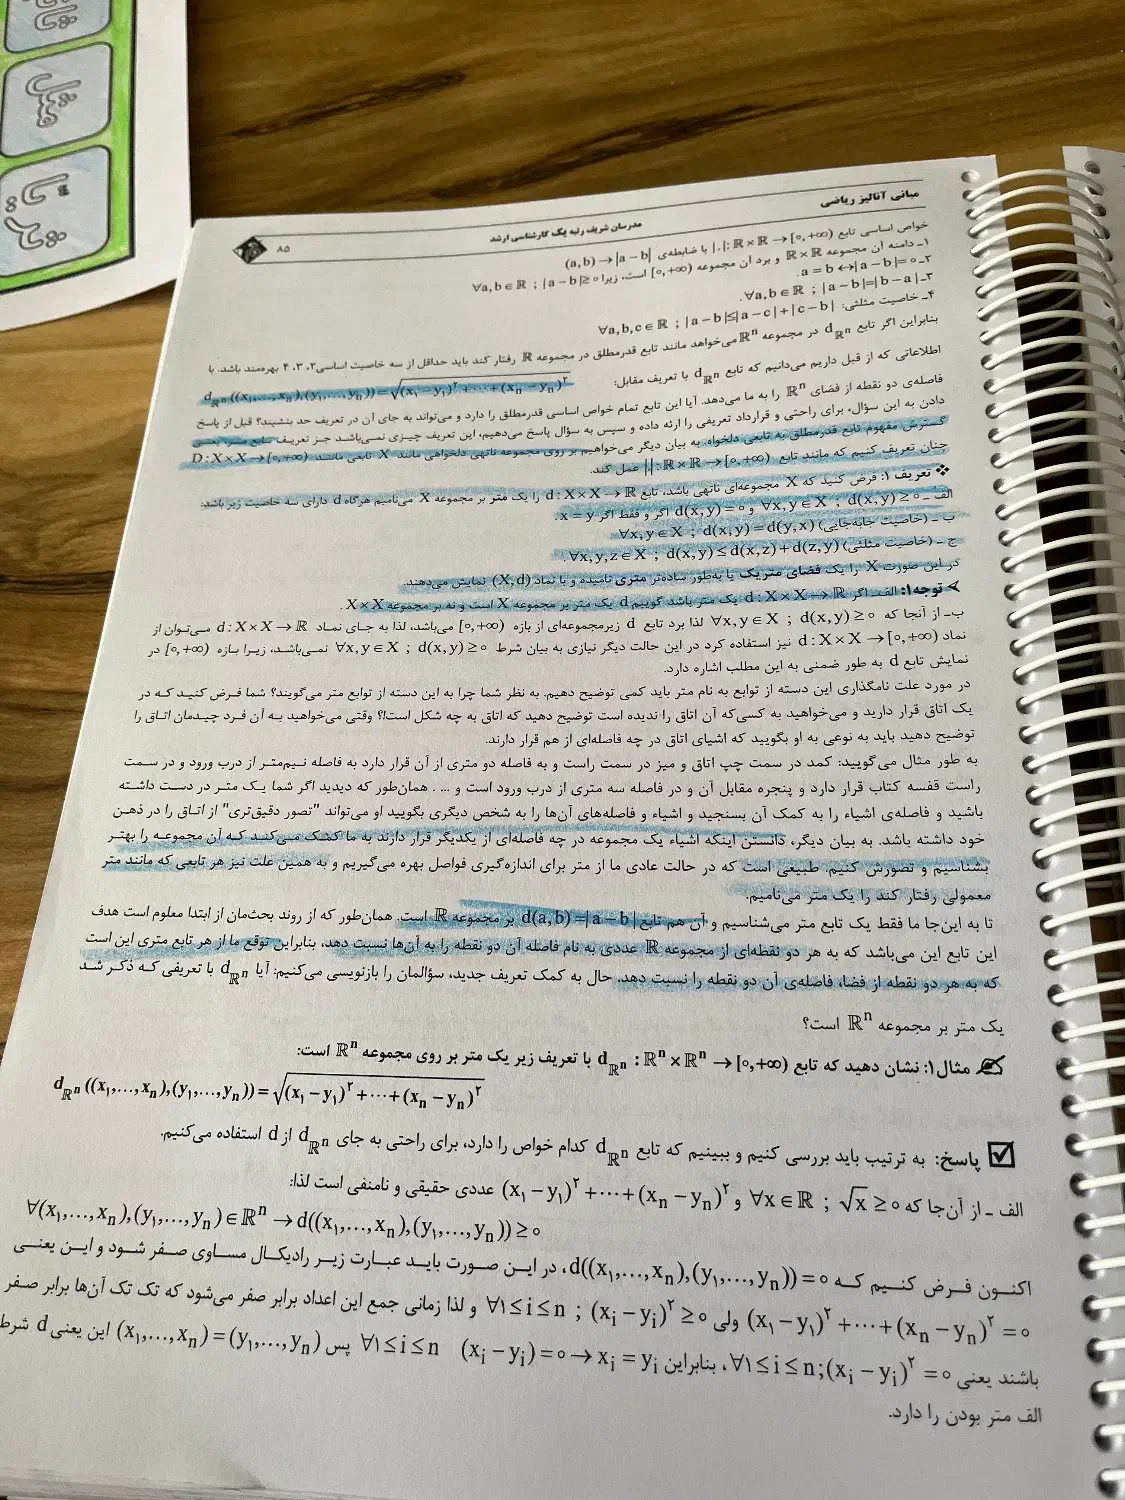 مبانی آنالیز ریاضی
مدرسان شریف رتبه یک کارشناسی ارشد
۸۵
خواص اساسی تابع |.| : ℝ×ℝ → [۰,+∞) با ضابطه‌ی (a,b) → |a−b|
۱ـ دامنه آن مجموعه ℝ×ℝ و برد آن مجموعه [۰,+∞) است، زیرا ∀a,b∈ℝ ; |a−b|≥۰
۲ـ a=b ↔ |a−b|=۰.
۳ـ ∀a,b∈ℝ ; |a−b|=|b−a|.
۴ـ خاصیت مثلثی: ∀a,b,c∈ℝ ; |a−b|≤|a−c|+|c−b|
بنابراین اگر تابع d_ℝⁿ در مجموعه ℝⁿ می‌خواهد مانند تابع قدرمطلق در مجموعه ℝ رفتار کند باید حداقل از سه خاصیت اساسی ۲، ۳، ۴ بهره‌مند باشد. با
اطلاعاتی که از قبل داریم می‌دانیم که تابع d_ℝⁿ با تعریف مقابل: d_ℝⁿ((x₁,…,xₙ),(y₁,…,yₙ)) = √((x₁−y₁)²+⋯+(xₙ−yₙ)²)
فاصله‌ی دو نقطه از فضای ℝⁿ را به ما می‌دهد. آیا این تابع تمام خواص اساسی قدرمطلق را دارد و می‌تواند به جای آن در تعریف حد بنشیند؟ قبل از پاسخ
دادن به این سؤال، برای راحتی و قرارداد تعریفی را ارئه داده و سپس به سؤال پاسخ می‌دهیم، این تعریف چیزی نمی‌باشد جز تعریف تابع متر، یعنی
گسترش مفهوم تابع قدرمطلق به تابعی دلخواه. به بیان دیگر می‌خواهیم بر روی مجموعه ناتهی دلخواهی مانند X تابعی مانند D : X×X → [۰,+∞)
چنان تعریف کنیم که مانند تابع | | : ℝ×ℝ → [۰,+∞) عمل کند.
❖ تعریف ۱: فرض کنید که X مجموعه‌ای ناتهی باشد، تابع d : X×X → ℝ را یک متر بر مجموعه X می‌نامیم هرگاه d دارای سه خاصیت زیر باشد:
الف ـ ∀x,y∈X ; d(x,y)≥۰ و d(x,y)=۰ اگر و فقط اگر x=y.
ب ـ (خاصیت جابه‌جایی) ∀x,y∈X ; d(x,y)=d(y,x)
ج ـ (خاصیت مثلثی) ∀x,y,z∈X ; d(x,y)≤d(x,z)+d(z,y).
در این صورت X را یک فضای متریک یا به‌طور ساده‌تر متری نامیده و با نماد (X,d) نمایش می‌دهند.
➤ توجه ۱: الف ـ اگر d : X×X → ℝ یک متر باشد گوییم d یک متر بر مجموعه X است و نه بر مجموعه X×X.
ب ـ از آنجا که ∀x,y∈X ; d(x,y)≥۰ لذا برد تابع d زیرمجموعه‌ای از بازه [۰,+∞) می‌باشد، لذا به جای نماد d : X×X → ℝ می‌توان از
نماد d : X×X → [۰,+∞) نیز استفاده کرد در این حالت دیگر نیازی به بیان شرط ∀x,y∈X ; d(x,y)≥۰ نمی‌باشد، زیرا بازه [۰,+∞) در
نمایش تابع d به طور ضمنی به این مطلب اشاره دارد.
در مورد علت نامگذاری این دسته از توابع به نام متر باید کمی توضیح دهیم. به نظر شما چرا به این دسته از توابع متر می‌گویند؟ شما فرض کنید که در
یک اتاق قرار دارید و می‌خواهید به کسی‌که آن اتاق را ندیده است توضیح دهید که اتاق به چه شکل است؟! وقتی می‌خواهید به آن فرد چیدمان اتاق را
توضیح دهید باید به نوعی به او بگویید که اشیای اتاق در چه فاصله‌ای از هم قرار دارند.
به طور مثال می‌گویید: کمد در سمت چپ اتاق و میز در سمت راست و به فاصله دو متری از آن قرار دارد به فاصله نیم‌متر از درب ورود و در سمت
راست قفسه کتاب قرار دارد و پنجره مقابل آن و در فاصله سه متری از درب ورود است و ... . همان‌طور که دیدید اگر شما یک متر در دست داشته
باشید و فاصله‌ی اشیاء را به کمک آن بسنجید و اشیاء و فاصله‌های آن‌ها را به شخص دیگری بگویید او می‌تواند "تصور دقیق‌تری" از اتاق را در ذهن
خود داشته باشد. به بیان دیگر، دانستن اینکه اشیاء یک مجموعه در چه فاصله‌ای از یکدیگر قرار دارند به ما کمک می‌کند که آن مجموعه را بهتر
بشناسیم و تصورش کنیم. طبیعی است که در حالت عادی ما از متر برای اندازه‌گیری فواصل بهره می‌گیریم و به همین علت نیز هر تابعی که مانند متر
معمولی رفتار کند را یک متر می‌نامیم.
تا به این‌جا ما فقط یک تابع متر می‌شناسیم و آن هم تابع d(a,b)=|a−b| بر مجموعه ℝ است. همان‌طور که از روند بحث‌مان از ابتدا معلوم است هدف
این تابع این می‌باشد که به هر دو نقطه‌ای از مجموعه ℝ عددی به نام فاصله آن دو نقطه را به آن‌ها نسبت دهد، بنابراین توقع ما از هر تابع متری این است
که به هر دو نقطه از فضا، فاصله‌ی آن دو نقطه را نسبت دهد. حال به کمک تعریف جدید، سؤالمان را بازنویسی می‌کنیم: آیا d_ℝⁿ با تعریفی که ذکر شد
یک متر بر مجموعه ℝⁿ است؟
مثال ۱: نشان دهید که تابع d_ℝⁿ : ℝⁿ×ℝⁿ → [۰,+∞) با تعریف زیر یک متر بر روی مجموعه ℝⁿ است:
d_ℝⁿ((x₁,…,xₙ),(y₁,…,yₙ)) = √((x₁−y₁)²+⋯+(xₙ−yₙ)²)
پاسخ: به ترتیب باید بررسی کنیم و ببینیم که تابع d_ℝⁿ کدام خواص را دارد، برای راحتی به جای d_ℝⁿ از d استفاده می‌کنیم.
الف ـ از آن‌جا که ∀x∈ℝ ; √x≥۰ و (x₁−y₁)²+⋯+(xₙ−yₙ)² عددی حقیقی و نامنفی است لذا:
∀(x₁,…,xₙ),(y₁,…,yₙ)∈ℝⁿ → d((x₁,…,xₙ),(y₁,…,yₙ))≥۰
اکنون فرض کنیم که d((x₁,…,xₙ),(y₁,…,yₙ))=۰، در این صورت باید عبارت زیر رادیکال مساوی صفر شود و این یعنی
(x₁−y₁)²+⋯+(xₙ−yₙ)²=۰ ولی ∀۱≤i≤n ; (xᵢ−yᵢ)²≥۰ و لذا زمانی جمع این اعداد برابر صفر می‌شود که تک تک آن‌ها برابر صفر
باشند یعنی ∀۱≤i≤n;(xᵢ−yᵢ)²=۰، بنابراین ∀۱≤i≤n (xᵢ−yᵢ)=۰→xᵢ=yᵢ پس (x₁,…,xₙ)=(y₁,…,yₙ) این یعنی d شرط
الف متر بودن را دارد.